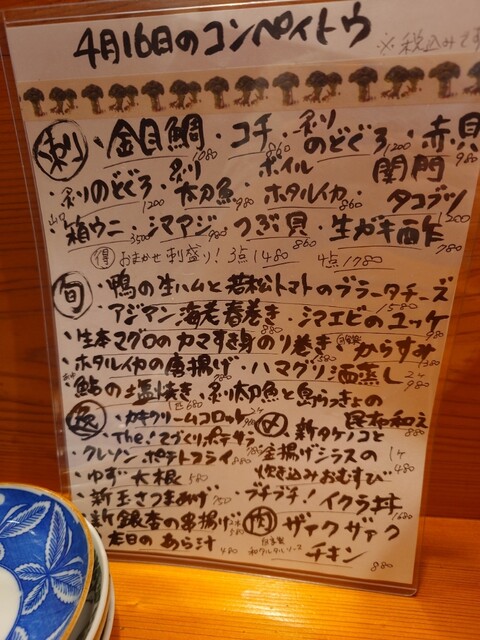 4月16日のコンペイトウ
※税込みです
刺 ・金目鯛 1080 ・コチ 860 ・炙りのどぐろ 1200 ・赤貝 980
・炙りのどぐろ 1200 ・炙り太刀魚 980 ・ボイルホタルイカ 860 ・関門タコブツ 1200
・箱ウニ 3500 ・シマアジ 980 ・つぶ貝 860 ・生ガキ酢 780
得 おまかせ刺盛り! 3点1480 4点1780
旬 ・鴨の生ハムと若松トマトのブラータチーズ 1580
・アジアン海老春巻き 880 ・シマエビのユッケ 980
・生本マグロのカマすき身のり巻き ・自家製からすみ
・ホタルイカの唐揚げ 980 ・ハマグリ酒蒸し 980
・鮎の塩焼き 1匹680 ・炙り太刀魚と島らっきょの昆布和え 880
・カキクリームコロッケ
・The!手づくりポテサラ
・クレソンポテトフライ 880
・ゆず大根 580
・新玉さつまあげ 750
・新銀杏の串揚げ
・本日のあら汁 480
〆 ・新タケノコと釜揚げシラスの炊き込みおむすび 1ケ480
・プチプチ!イクラ丼 1680
肉 ザァクザァクチキン 880
自家製和タルタルソース